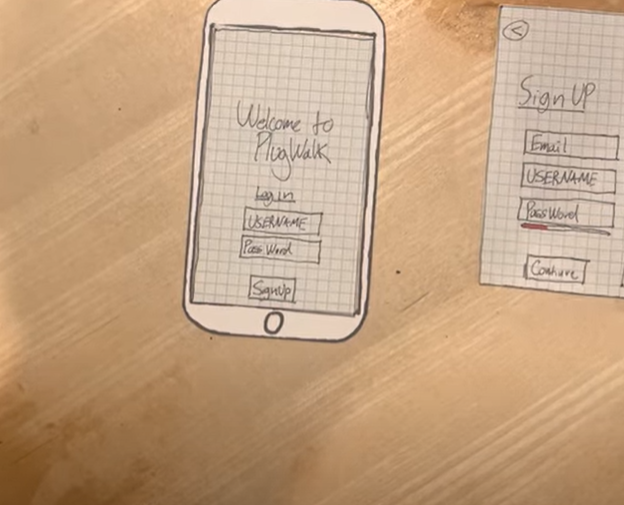 Welcome to
PlugWalk
Log in
USERNAME
PassWord
SignUp
<
Sign UP
Email
USERNAME
PassWord